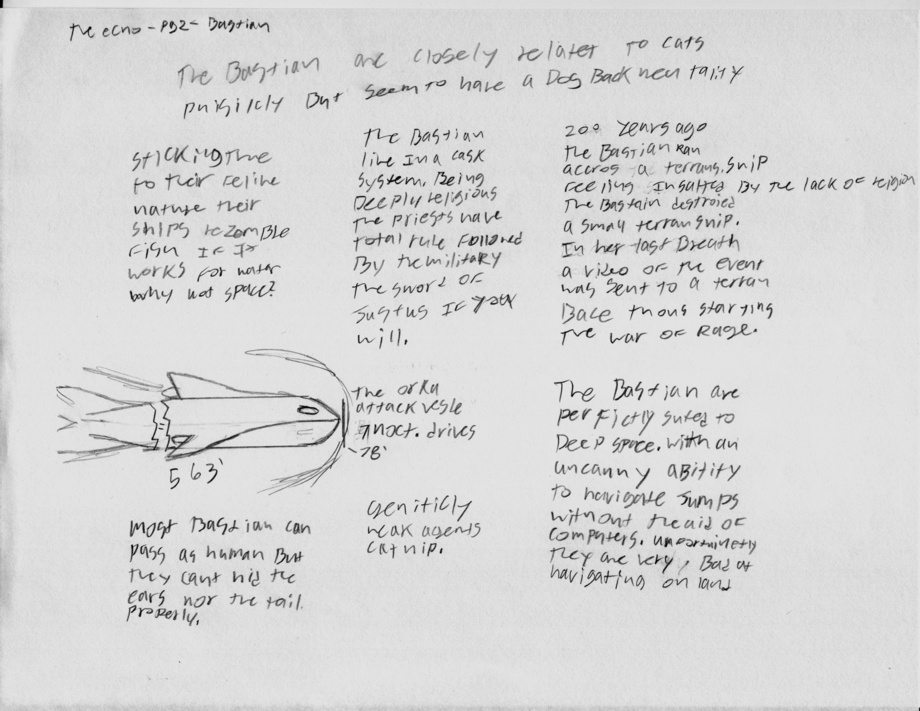 The echo - PG2 - Bastian
The Bastian are closely relater to cats
phisiicly But seem to have a Dog Back mentality
Sticking True
to their feline
nature their
ships rezomble
Fish If It
works for water
why not space?
The Bastian
live In a cask
System. Being
Deeply religious
The priests have
total rule Followed
By the military
the sword of
Sustus If you
will.
200 years ago
The Bastian Ran
accros a terrans. Ship
Feeling Insulted By the lack of religion
The Bastain destroied
a small terran ship.
In her last Breath
a video of the event
was sent to a terran
Bace thous starting
The war of Rage.
The orka
attack vesle
7noct. drives
78'
563'
The Bastian are
perfictly suted to
Deep space. with an
uncanny abitity
to navigate Jumps
without the aid of
computers. unfortinetly
they are very, Bad at
navigating on land
Geniticly
weak agents
catnip.
Most Bastian can
pass as human But
they cant hid the
ears nor the tail.
properly.